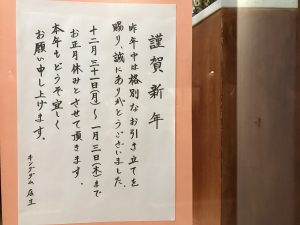 謹賀新年
昨年中は格別なお引き立てを
賜り、誠にありがとうございました。
十二月三十一日(月)〜一月三日(木)まで
お正月休みとさせて頂きます。
本年もどうぞ宜しく
お願い申し上げます。
キングダム店主